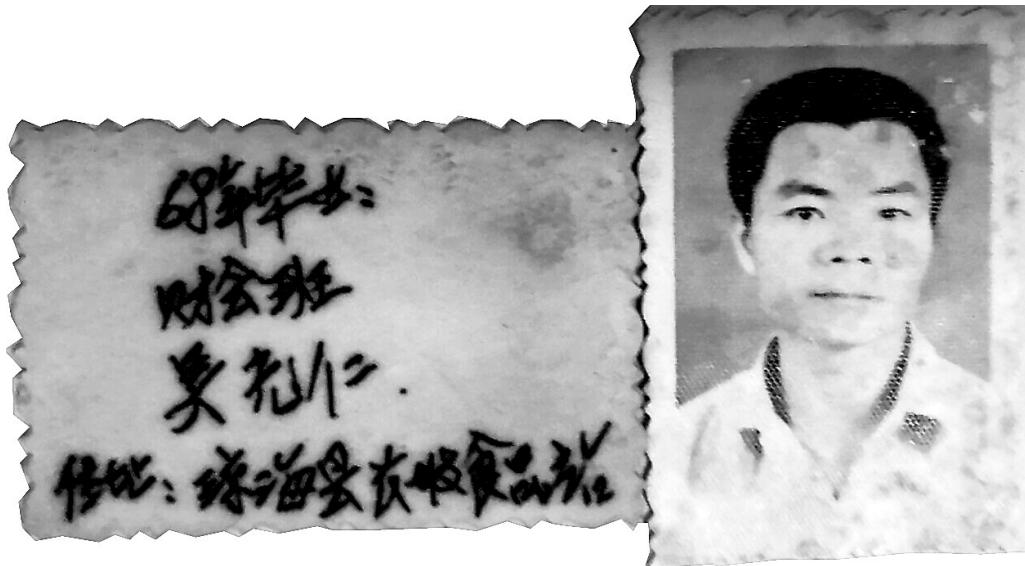 68年毕业:
财会班
吴先仁.
住址:琼海县农牧食品站